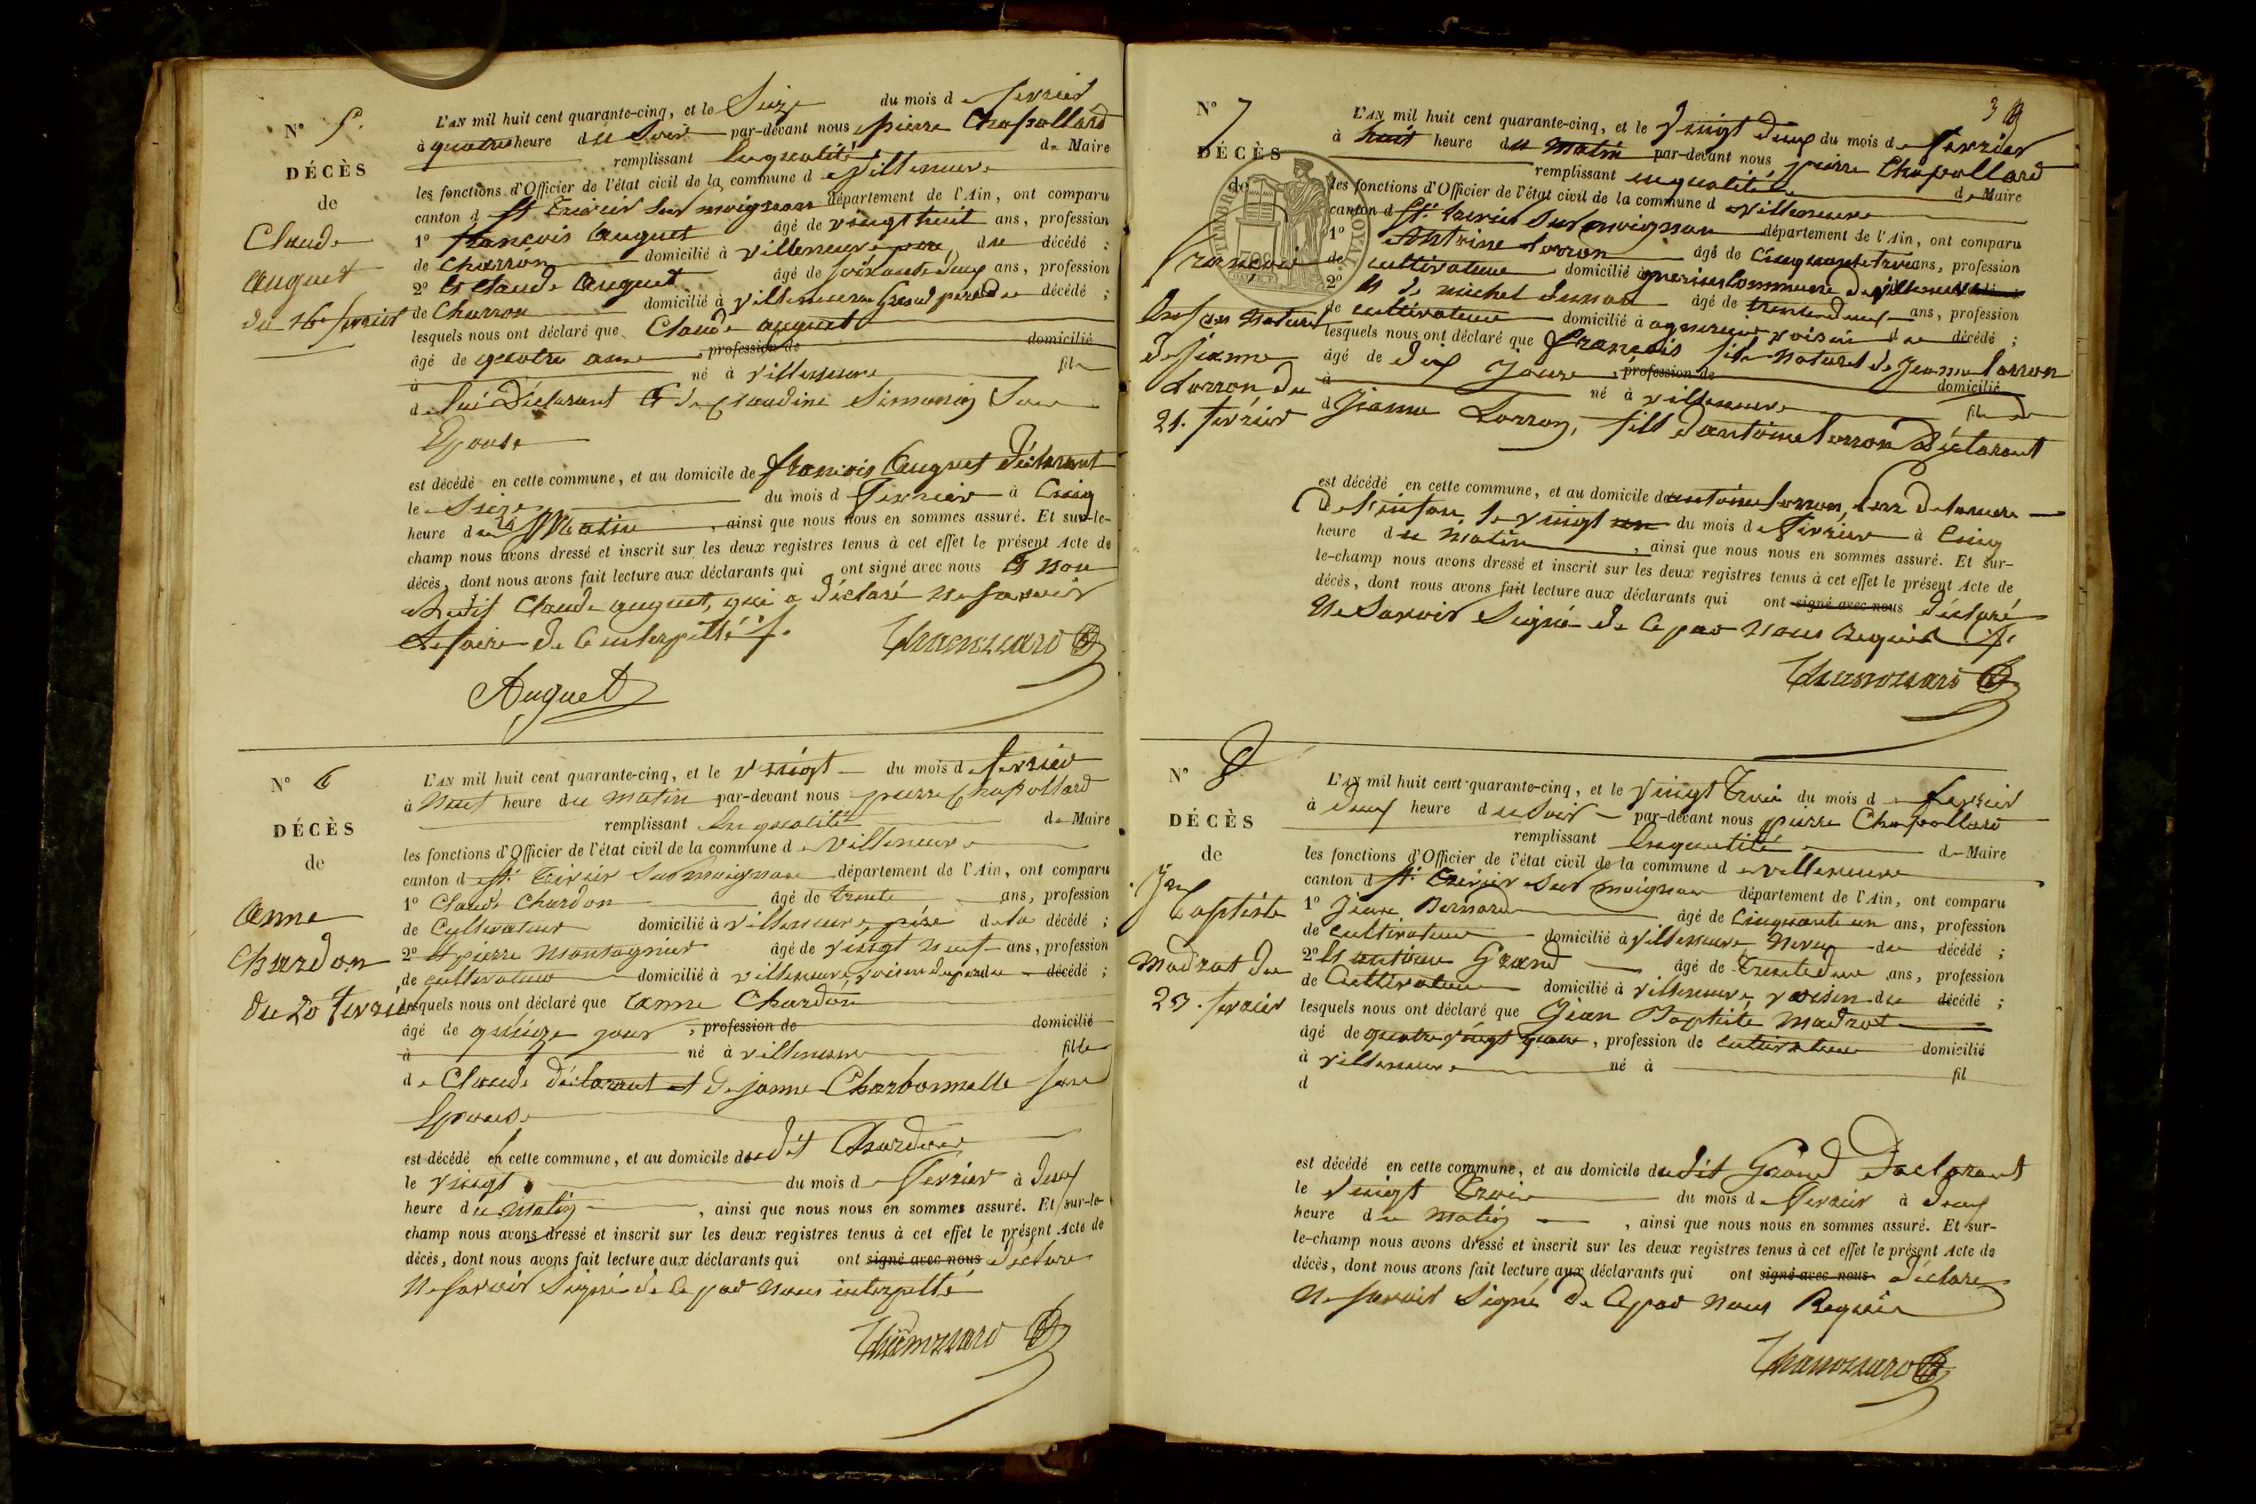 N° 5.
DÉCÈS
de
Claude
Auguet
du 16 fevrier
L'AN mil huit cent quarante-cinq, et le Seize du mois de fevrier
à quatre heure du Soir par-devant nous pierre Chapollard
remplissant en qualité de Maire
les fonctions d'Officier de l'état civil de la commune de villeneuve
canton de St Trivier sur moignans département de l'Ain, ont comparu
1° françois Auguet âgé de vingt huit ans, profession
de Charron domicilié à villeneuve père du décédé ;
2° Et Claude Auguet âgé de soixante deux ans, profession
de Charron domicilié à villeneuve Grand père du décédé ;
lesquels nous ont déclaré que Claude auguet
âgé de quatre ans , profession de domicilié
à né à villeneuve fils
de lui Déclarant Et de Claudine Simonin Son
Epouse
est décédé en cette commune, et au domicile de françois Auguet Déclarant
le Seize du mois de Fevrier à Cinq
heure du Matin , ainsi que nous nous en sommes assuré. Et sur-le-
champ nous avons dressé et inscrit sur les deux registres tenus à cet effet le présent Acte de
décès, dont nous avons fait lecture aux déclarants qui ont signé avec nous Et non
Ledit Claude auguet, qui a déclaré ne savoir
le faire de ce interpellé
Auguet
N° 6
DÉCÈS
de
Anne
Chardon
du 20 fevrier
L'AN mil huit cent quarante-cinq, et le vingt du mois de fevrier
à Neuf heure du matin par-devant nous pierre Chapollard
remplissant En qualité de Maire
les fonctions d'Officier de l'état civil de la commune de villeneuve
canton de St Trivier Sur moignans département de l'Ain, ont comparu
1° Claude Chardon âgé de trente ans, profession
de Cultivateur domicilié à villeneuve, père de la décédé ;
2° Et pierre Montagnier âgé de vingt neuf ans, profession
de cultivateur domicilié à villeneuve, voisin du père du décédé ;
lesquels nous ont déclaré que Anne Chardon
âgé de quinze jours , profession de domicilié
à né à villeneuve fille
de Claude déclarant et de janne Charbonnelle son
Epouse
est décédé en cette commune, et au domicile dudit Chardon
le vingt du mois de Fevrier à deux
heure du matin , ainsi que nous nous en sommes assuré. Et sur-le-
champ nous avons dressé et inscrit sur les deux registres tenus à cet effet le présent Acte de
décès, dont nous avons fait lecture aux déclarants qui ont signé avec nous déclaré
Ne savoir Signé de ce par nous interpellé
N° 7
DÉCÈS
de
françois
fils naturel
de jeanne
Lorron du
21. fevrier
3
TIMBRE ROYAL
L'AN mil huit cent quarante-cinq, et le vingt deux du mois de fevrier
à huit heure du matin par-devant nous pierre Chapollard
remplissant en qualité de Maire
les fonctions d'Officier de l'état civil de la commune de villeneuve
canton de St. Trivier Sur moignans département de l'Ain, ont comparu
1° Antoine Lorron âgé de Cinquante trois ans, profession
de cultivateur domicilié à agnerins commune de villeneuve
2° Et de michel âgé de trente deux ans, profession
de cultivateur domicilié à agnerins voisin du décédé ;
lesquels nous ont déclaré que françois fils naturel de Jeanne Lorron
âgé de dix Jours , profession de domicilié
à né à villeneuve fils de
d Jeanne Lorron, fille d'antoine Lorron Déclarant
est décédé en cette commune, et au domicile d'antoine Lorron, père de la mere
De l'enfan le vingt un du mois de Fevrier à Cinq
heure du matin , ainsi que nous nous en sommes assuré. Et sur-
le-champ nous avons dressé et inscrit sur les deux registres tenus à cet effet le présent Acte de
décès, dont nous avons fait lecture aux déclarants qui ont signé avec nous déclaré
Ne Savoir Signé de ce par nous Requis
N° 8
DÉCÈS
de
Jean
Baptiste
Madrat du
23. fevrier
L'AN mil huit cent quarante-cinq, et le vingt Trois du mois de fevrier
à deux heure du Soir par-devant nous pierre Chapollard
remplissant En qualité de Maire
les fonctions d'Officier de l'état civil de la commune de villeneuve
canton de St. Trivier Sur moignans département de l'Ain, ont comparu
1° Jean Bernard âgé de Cinquante un ans, profession
de cultivateur domicilié à villeneuve, Neveu du décédé ;
2° Et antoine Grand âgé de Trente deux ans, profession
de Cultivateur domicilié à villeneuve, voisin du décédé ;
lesquels nous ont déclaré que Jean Baptiste Madrat
âgé de quatre vingt , profession de cultivateur domicilié
à villeneuve né à fil
d
est décédé en cette commune, et au domicile dudit Grand Déclarant
le vingt Trois du mois de Fevrier à deux
heure du Matin , ainsi que nous nous en sommes assuré. Et sur-
le-champ nous avons dressé et inscrit sur les deux registres tenus à cet effet le présent Acte de
décès, dont nous avons fait lecture aux déclarants qui ont signé avec nous déclaré
Ne Savoir Signé De Ce par nous Requis